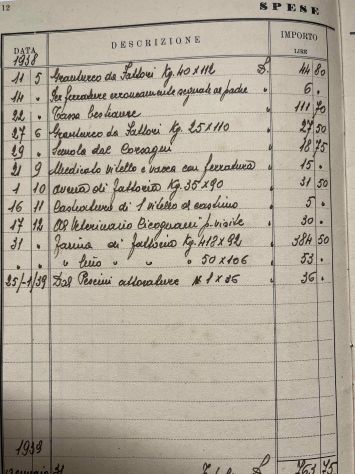 12 SPESE
DATA DESCRIZIONE IMPORTO
LIRE
1938
11 5 Granturco da Fattori Kg. 40 x 112 £. 44 80
14 " Per ferrature erroneamente segnate al padre " 6 "
22 " Tassa bestiame " 111 70
27 6 Granturco da Fattori Kg. 25 x 110 " 27 50
29 " dal " 18 75
21 9 Medicato vitello e vacca con ferratura " 15 "
1 10 di fattoria Kg. 35 x 90 " 31 50
16 11 Castratura di 1 vitello " 5 "
17 12 Al Veterinario p. visite " 30 "
31 " Farina di fattoria Kg. 418 x 92 " 384 50
" " " " " 50 x 106 " 53 "
25/-1/39 Dal 1 x 36 " 36 "
1939
Gennaio 31 £. 763 75